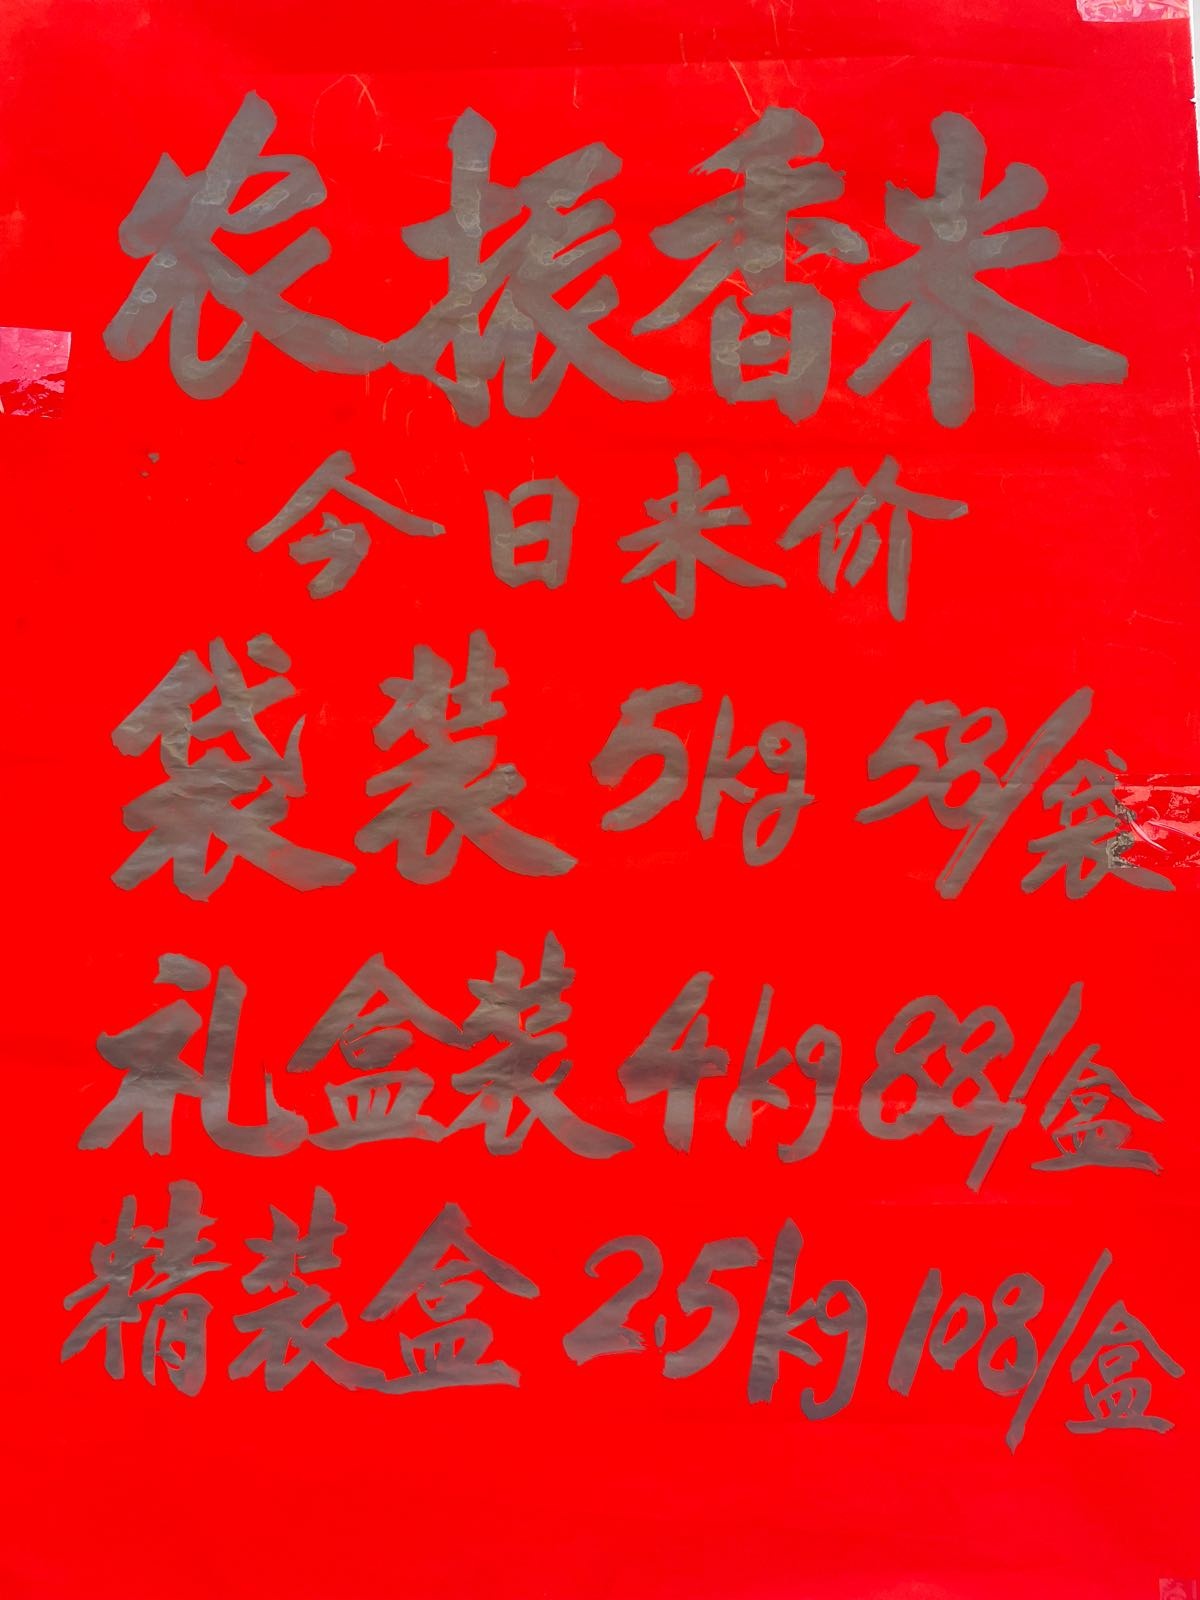 农振香米
今日米价
袋装 5kg 58/袋
礼盒装 4kg 88/盒
精装盒 2.5kg 108/盒